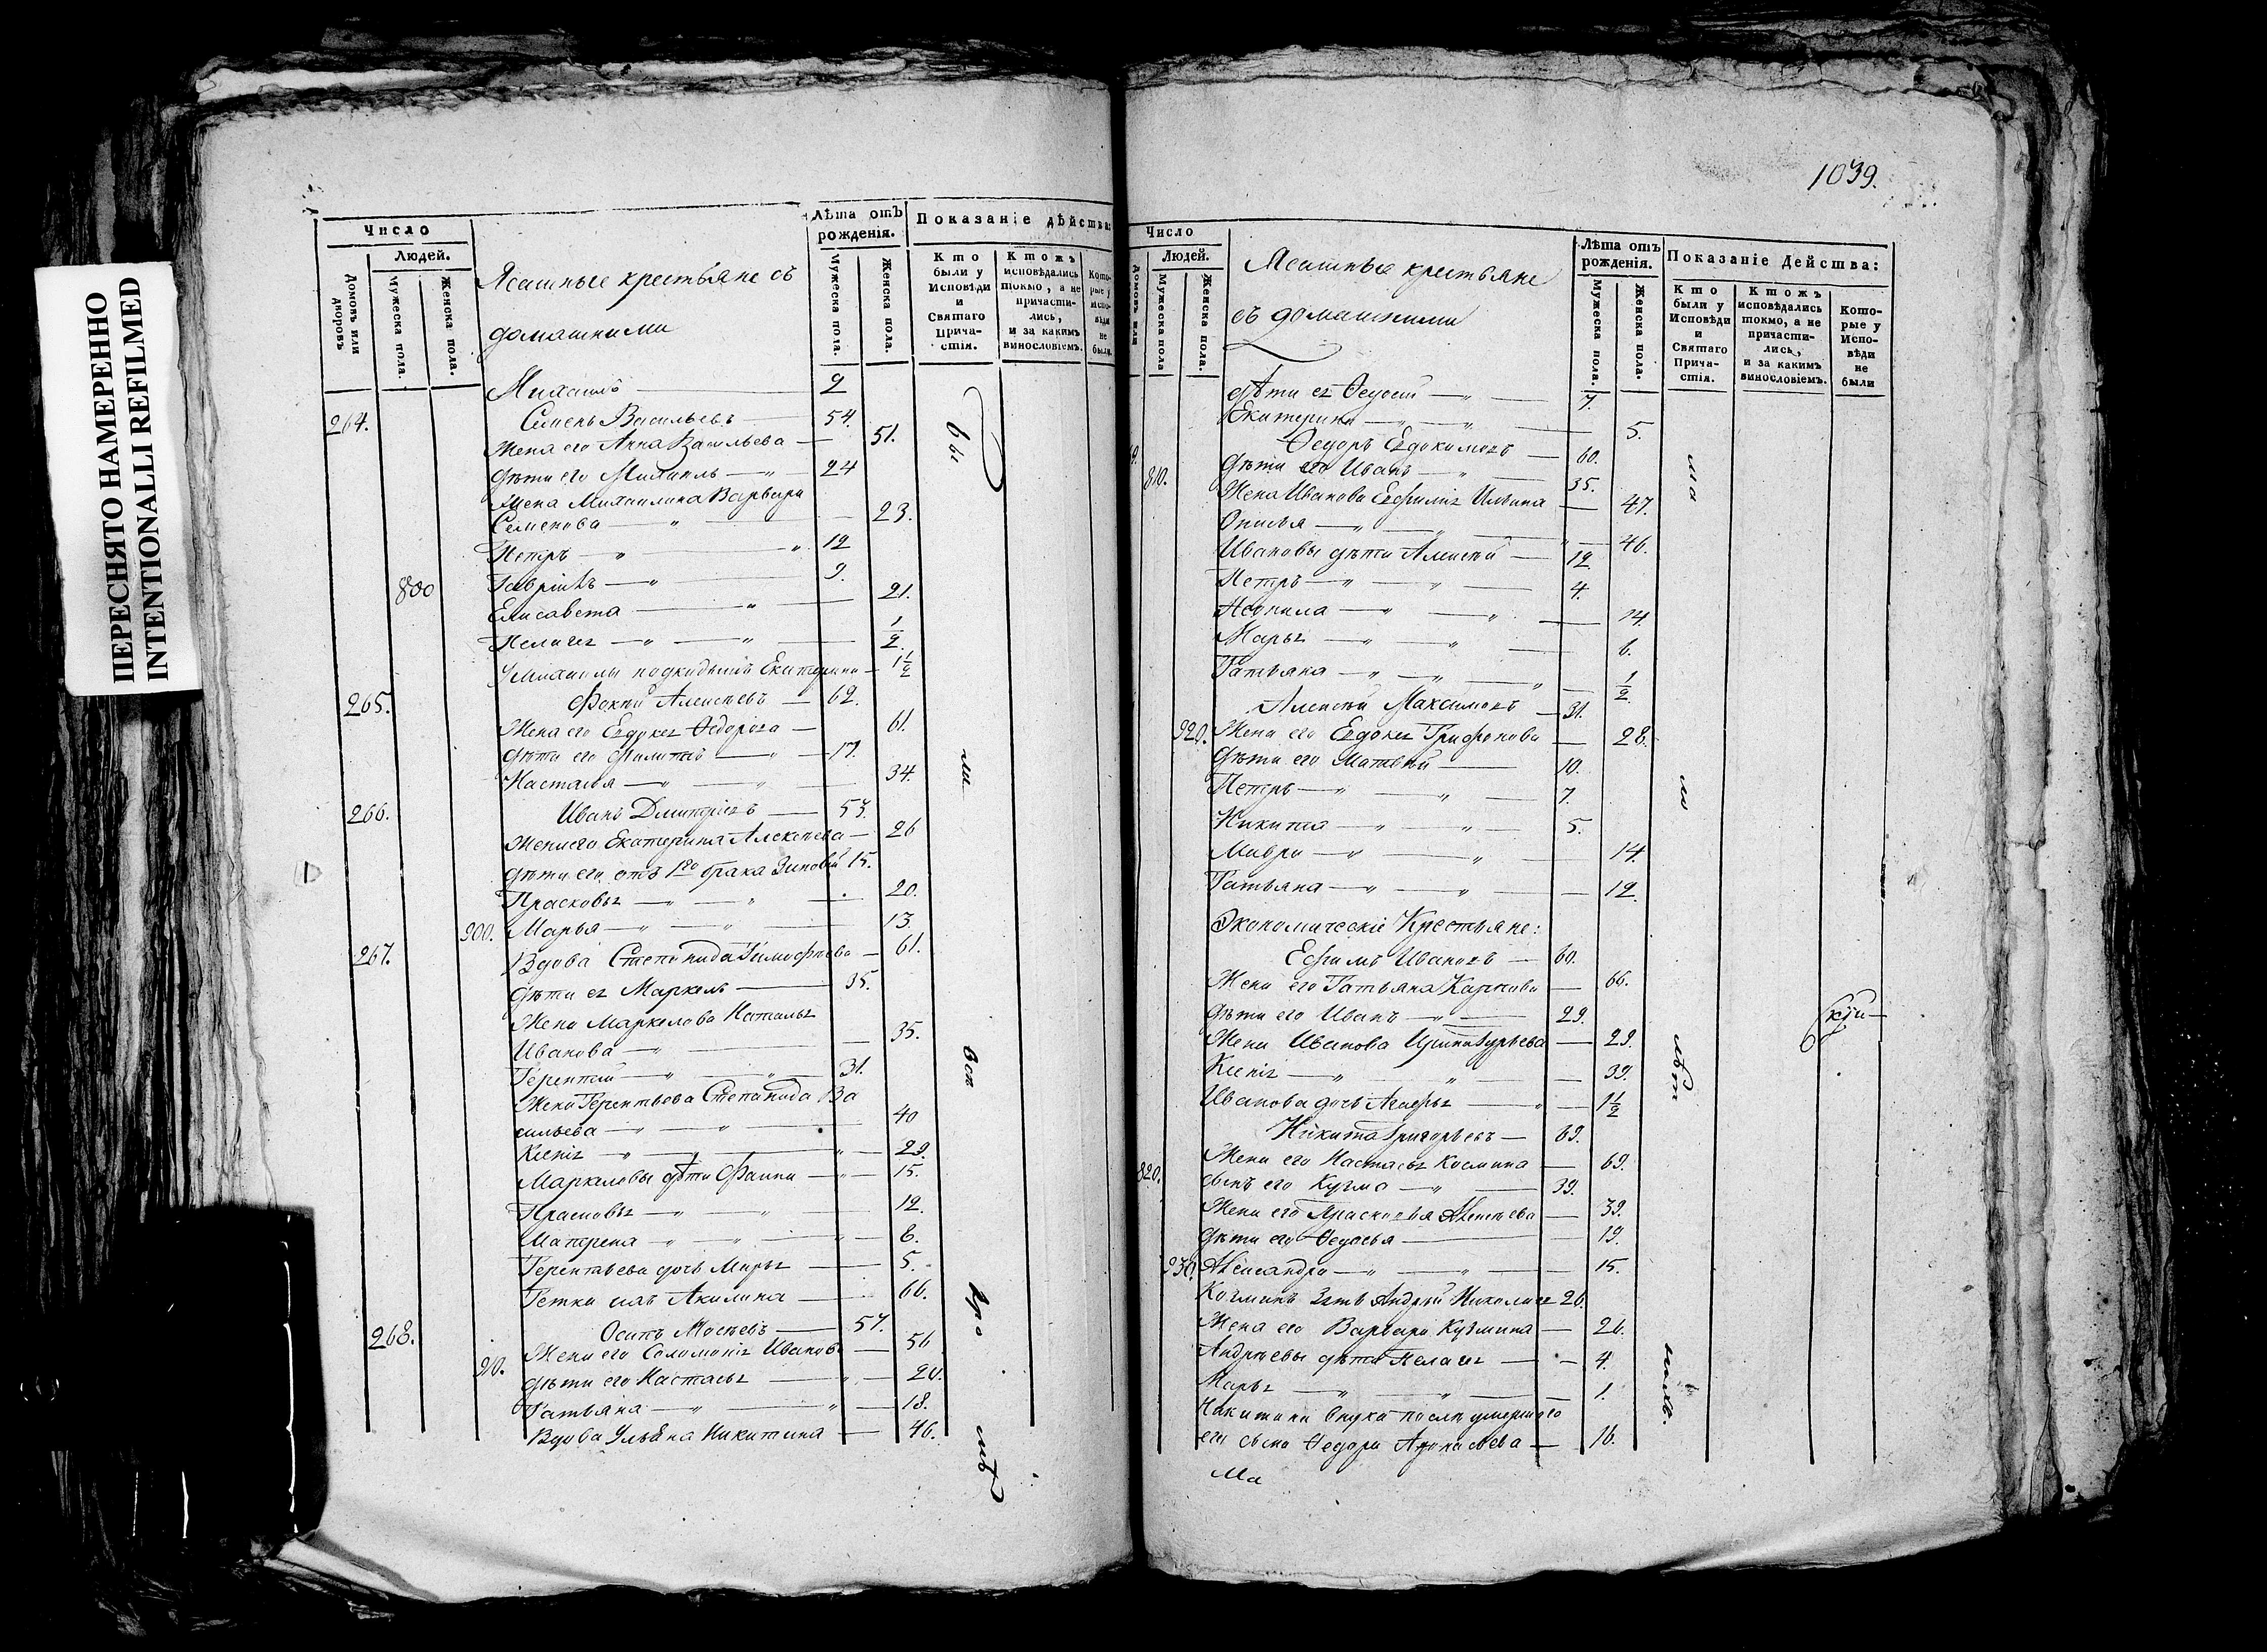 ПЕРЕСНЯТО НАМЕРЕННО
INTENTIONALLI REFILMED
Число
Людей.
Домовъ или дворовъ
Мужеска пола.
Женска пола.
Ясашные крестьяне съ
домашними
Лѣта отъ рожденія.
Мужеска пола.
Женска пола.
Показаніе дѣйства:
Кто были у Исповѣди и Святаго Причастія.
Ктожъ исповѣдались токмо, а не причастились, и за какимъ винословіемъ.
Которые у Исповѣди не были.
Михаилъ 2
264. Семенъ Васильевъ 54.
Жена его Анна Васильева 51.
Дѣти его Михаилъ 24
Жена Михаилова Варвара
Семенова 23.
Петръ 12
800 Гавріилъ 9.
Елисавета 21.
Пелагея 1/2.
У Михаилы подкидышъ Екатерина 1 1/2
265. Фокѣй Алексѣевъ 62.
Жена его Евдокея Ѳедорова 61.
Дѣти его Филитъ 17.
Настасья 34.
266. Иванъ Дмитріевъ 53.
Жена его Екатерина Алексѣева 26
Дѣти его отъ 1го брака Зиновій 15.
Прасковья 20.
900. Марья 13
267. Вдова Степанида Тимофѣева 61.
Дѣти ея Маркелъ 35.
Жена Маркелова Наталья
Иванова 35.
Терентій 31.
Жена Терентьева Степанида Ва
сильева 40
Ксенія 29.
Маркеловы дѣти Фаина 15.
Прасковья 12.
Матрена 8.
Терентьева дочь Марья 5.
Тетка ихъ Акилина 66.
268. Осипъ Мосѣевъ 57.
Жена его Соломонія Иванова 56
910. Дѣти его Настасья 20.
Татьяна 18.
Вдова Ульяна Никитина 46.
бы
ли
всѣ
кро
мѣ
1039.
Число
Людей.
Домовъ или
Мужеска пола
Женска пола.
Ясашные крестьяне
съ домашними
Лѣта отъ рожденія.
Мужеска пола.
Женска пола.
Показаніе Действа:
Кто были у Исповѣди и Святаго Причастія.
Ктожъ исповѣдались токмо, а не причастились, и за какимъ винословіемъ.
Которые у Исповѣди не были
Дѣти ея Ѳедосій 7.
Екатерина 5.
Ѳедоръ Евдокимовъ 60.
810. Дѣти его Иванъ 35.
Жена Иванова Евфимія Ильина 47.
Онисья 46.
Ивановы дѣти Алексѣй 12
Петръ 4.
Неонила 14.
Марья 6.
Татьяна 1/2.
Алексѣй Максимовъ 31.
920. Жена его Евдокея Трифонова 28.
Дѣти его Матвѣй 10.
Петръ 7.
Никита 5.
Мавра 14.
Татьяна 12.
Экономическіе Крестьяне:
Ефимъ Ивановъ 60.
Жена его Татьяна Карпова 66.
Дѣти его Иванъ 29.
Жена Иванова Ирина Гурьева 29.
Ксенія 39.
Иванова дочь Агафья 1 1/2
Никита Григорьевъ 69.
Жена его Настасья Космина 69.
820. Сынъ его Кузма 39.
Жена его Прасковья Алексѣева 39.
Дѣти его Ѳедосья 19.
930. Александра 15.
Козминъ Зять Андрей Николаевъ 26.
Жена его Варвара Кузмина 26.
Андреевы дѣти Пелагея 4.
Марья 1.
Никитина внука послѣ умершаго
его сына Ѳедора Афонасьева 16.
Ма
ма
ло
лѣт
ныхъ.